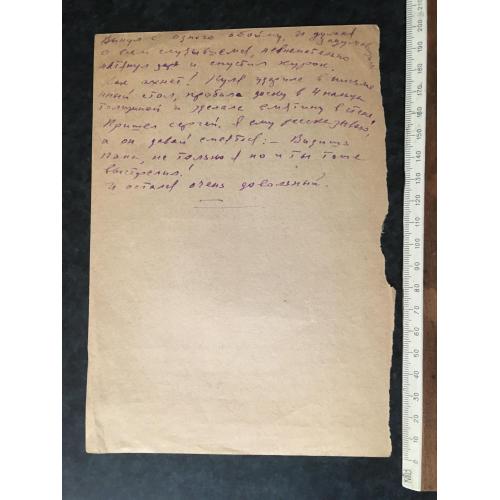 Вынул с одного обойму, и думая
о
случившемся,
натянул и спустил курок.
Как ахнет! Пуля ударила в письмен
ный стол, пробила доску в 4 пальца
толщиной и сделала вмятину в стене.
Пришел Сергей. Я ему рассказываю,
а он давай смеяться: – Видишь
папа, не только я но и ты тоже
выстрелил!
И остался очень довольный.